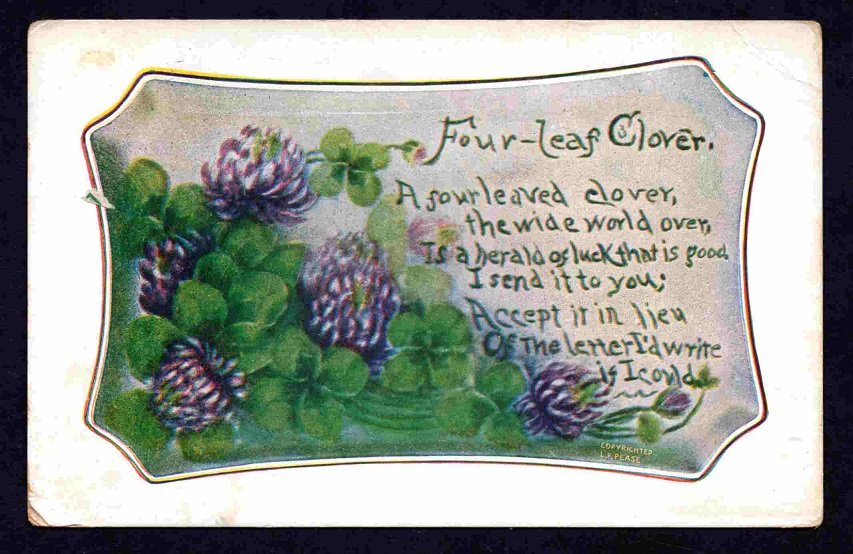 Four-leaf Clover.
A fourleaved clover,
the wide world over,
Is a herald of luck that is good.
I send it to you;
Accept it in lieu
Of the letter I'd write
if I could.
COPYRIGHTED
L.F.PEASE